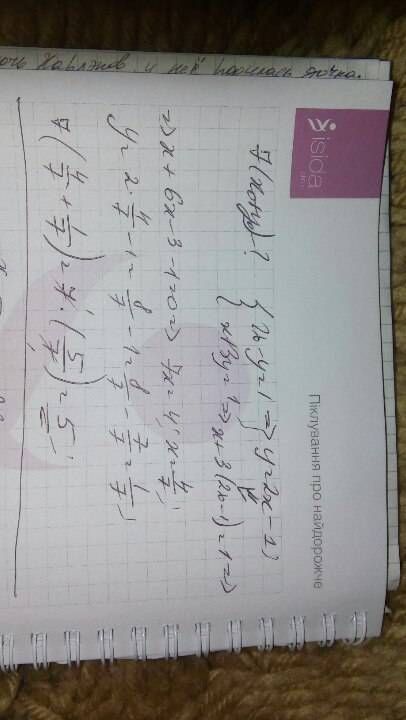 isida
Піклування про найдорожче
и неё
точка.
7(x₀+y₀)-? { 2x-y=1 => y=2x-1;
x+3y=1 => x+3(2x-1)=1 =>
=> x+6x-3-1=0 => 7x=4; x=4/7;
y=2·4/7-1=8/7-1=8/7-7/7=1/7;
7(4/7+1/7)=7·(5/7)=5;